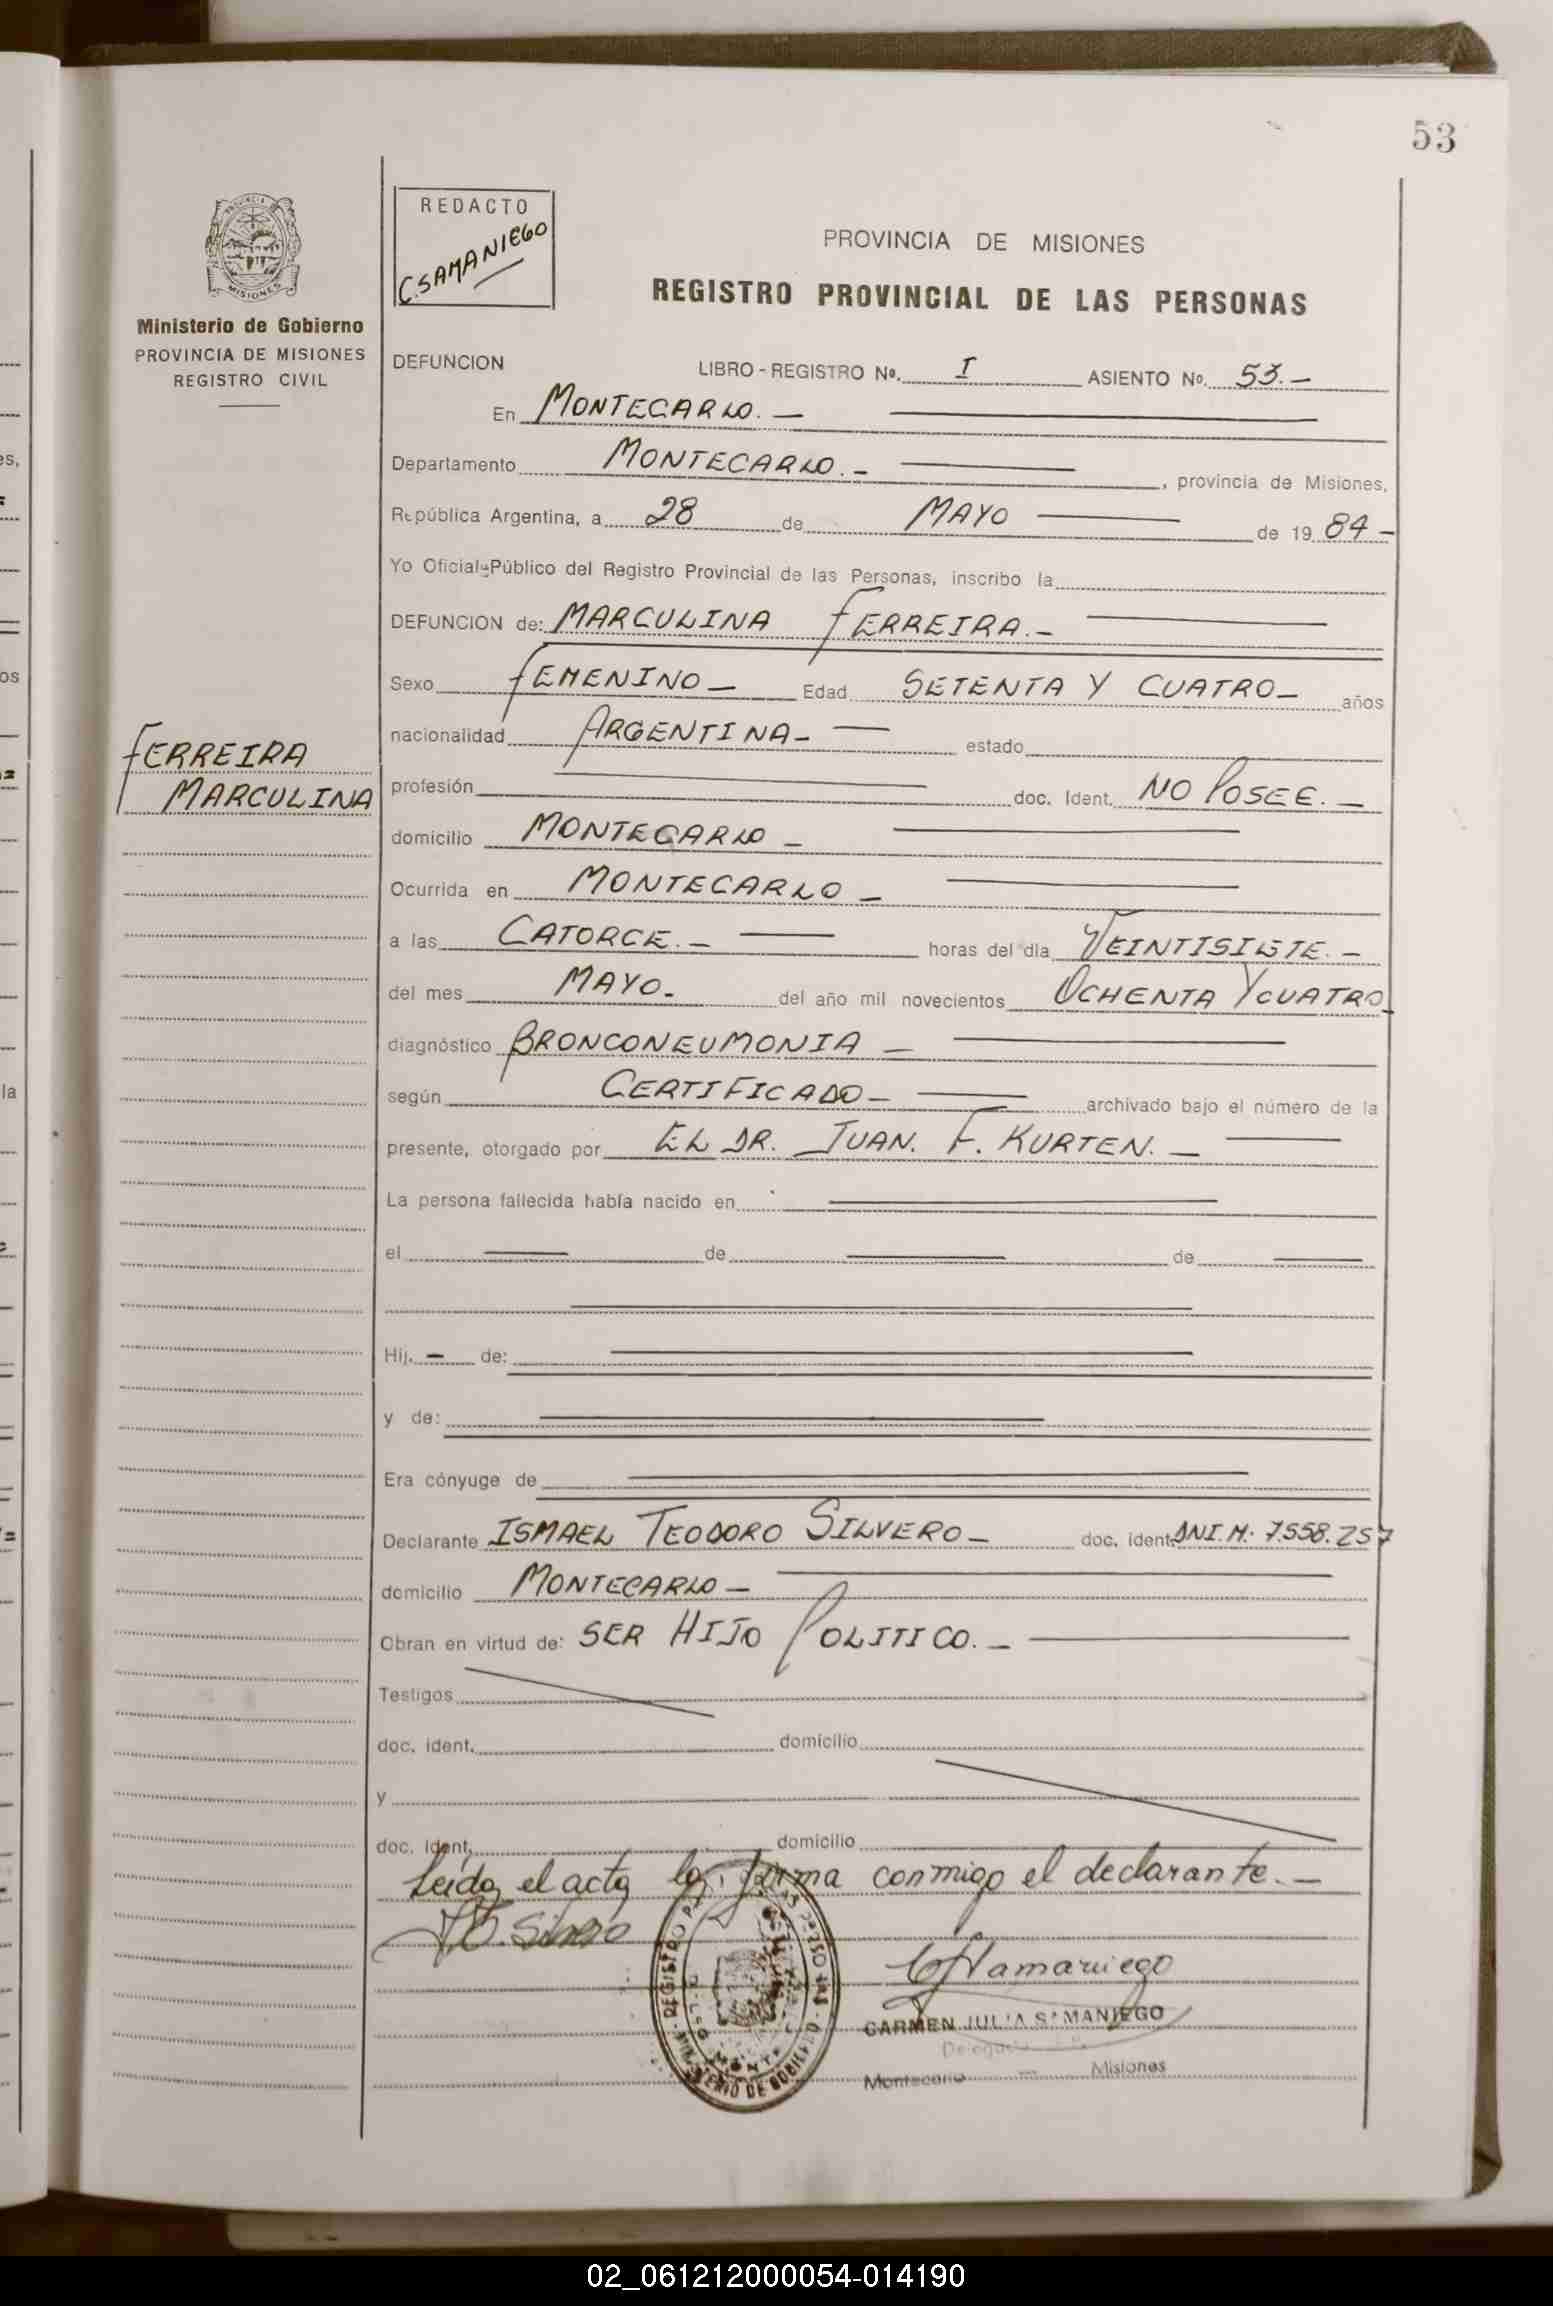 53
PROVINCIA DE MISIONES
Ministerio de Gobierno
PROVINCIA DE MISIONES
REGISTRO CIVIL
REDACTO
C.SAMANIEGO
PROVINCIA DE MISIONES
REGISTRO PROVINCIAL DE LAS PERSONAS
DEFUNCION LIBRO - REGISTRO Nº. I ASIENTO Nº. 53.-
En MONTECARLO. —
Departamento MONTECARLO.- , provincia de Misiones,
República Argentina, a 28 de MAYO de 19 84-
Yo Oficial Público del Registro Provincial de las Personas, inscribo la
DEFUNCION de: MARCULINA FERREIRA.-
Sexo FEMENINO- Edad SETENTA Y CUATRO- años
nacionalidad ARGENTINA- estado
FERREIRA
MARCULINA
profesión doc. Ident. NO POSEE.-
domicilio MONTECARLO -
Ocurrida en MONTECARLO -
a las CATORCE.- horas del día VEINTISIETE.-
del mes MAYO- del año mil novecientos OCHENTA Y CUATRO-
diagnóstico BRONCONEUMONIA -
según CERTIFICADO- archivado bajo el número de la
presente, otorgado por EL DR. JUAN. F. KURTEN.-
La persona fallecida había nacido en
el de de
Hij. - de:
y de:
Era cónyuge de
Declarante ISMAEL TEODORO SILVERO- doc. ident. DNI.M. 7.558.257
domicilio MONTECARLO-
Obran en virtud de: SER HIJO POLITICO.-
Testigos
doc. ident. domicilio
y
doc. ident. domicilio
Leída el acta la firma conmigo el declarante.-
CARMEN JULIA SAMANIEGO
Montecarlo — Misiones
02_061212000054-014190